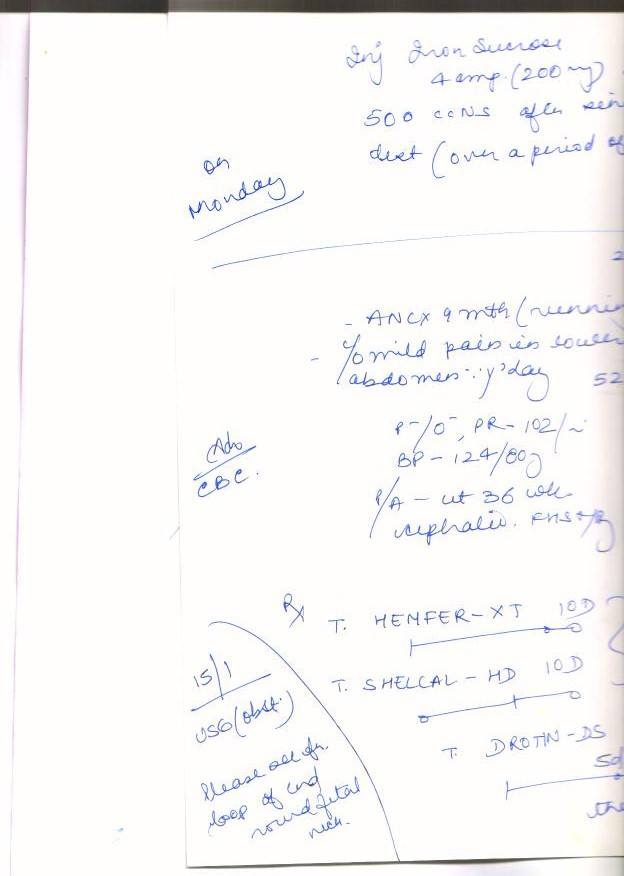 Inj Iron Sucrose
4 amp. (200 mg)
500 cc NS after
(over a period of
on
Monday
2
- ANCX 9 mth (runnin
- c/o mild pain in lower
abdomen y'day
52
P-/O-, PR-102/
BP-124/80
Adv
CBC.
P/A - ut 36 wk
cephalic. FHS+/R
Rx
T. HEMFER-XT 10D
T. SHELCAL-HD 10D
T. DROTIN-DS
5d
15/1
USG (obst.)
Please
loop of cord
round fetal
neck.